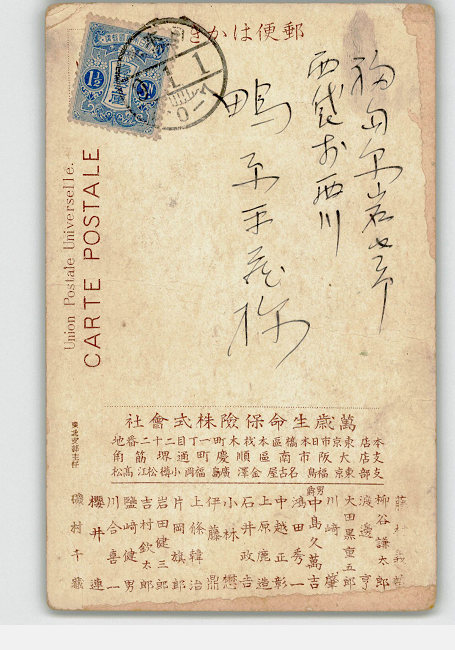 郵便はかき
Union Postale Universelle.
CARTE POSTALE
1½
1 1
西袋村西川
鴫原平蔵様
萬歳生命保險株式會社
本店 東京市日本橋區本材木町一丁目二十二番地
支店 東京 大阪市南區順慶町通堺筋角
支部 東京 大阪 福島 名古屋 金澤 廣島 福岡 小樽 松江 高松
東北支部主任
柳谷謙太郎
渡邊亨
大田黒重五郎
川崎肇
中島久萬吉
鴻田秀一
中越正彰
上原鹿造
石井政吉
小林懋
伊藤鼎
上條韓治
片岡旗郎
岩田健三郎
吉村欽太郎
鹽崎健男
川合喜一
櫻井連
磯村千藏